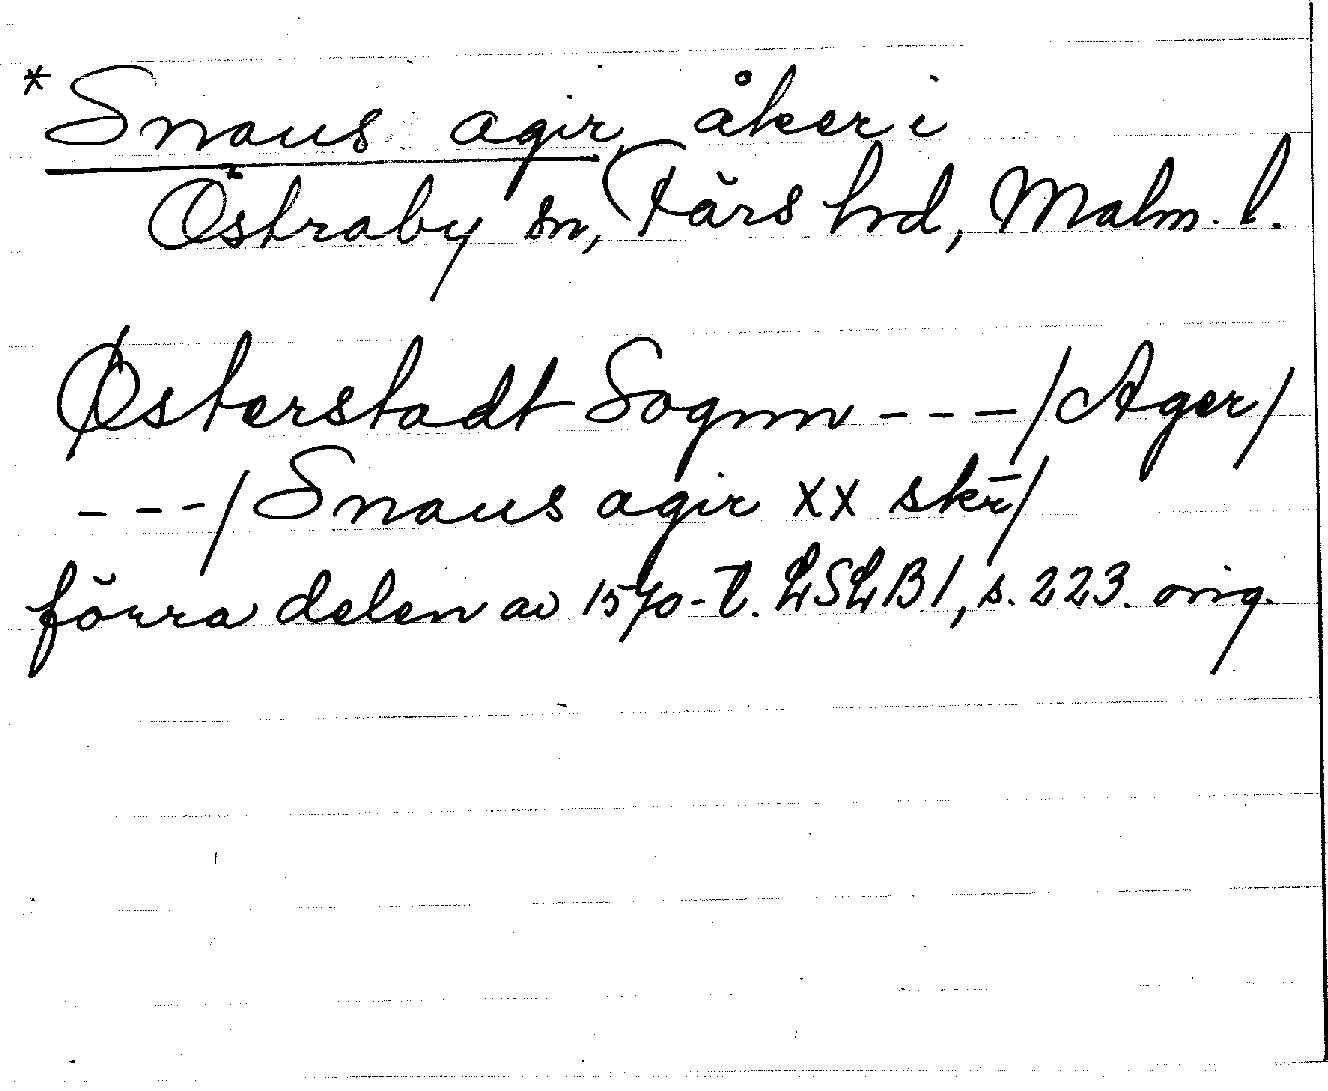 * Snaus agir, åker i
Östraby sn, Färs hd, Malm. l.
Østerstadt Sognn - - - / Ager /
- - - / Snaus agir xx skr̄ /
förra delen av 1570-t. LSLB 1, s. 223. orig.